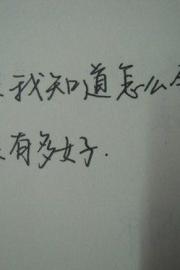 我知道怎么
有多好.